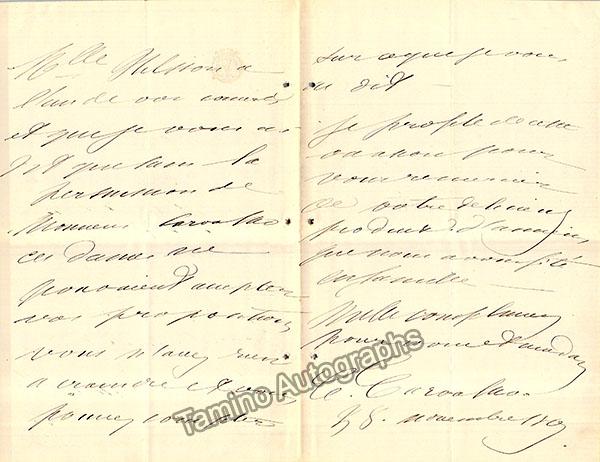 Mlle Nilsson a
l'un de vos
et que je vous ai
dit que sans la
permission de
Monsieur Carvalho
ces dames ne
pouvaient accepter
vos propositions
vous n'avez rien
à craindre et vous
pouvez compter
sur ce que je vous
ai dit
Je profite de cette
occasion pour
vous remercier
de votre délicieux
produit
que nous avons fêté
en famille
Mille compliments
pour vous et
C. Carvalho
8 novembre
Tamino Autographs